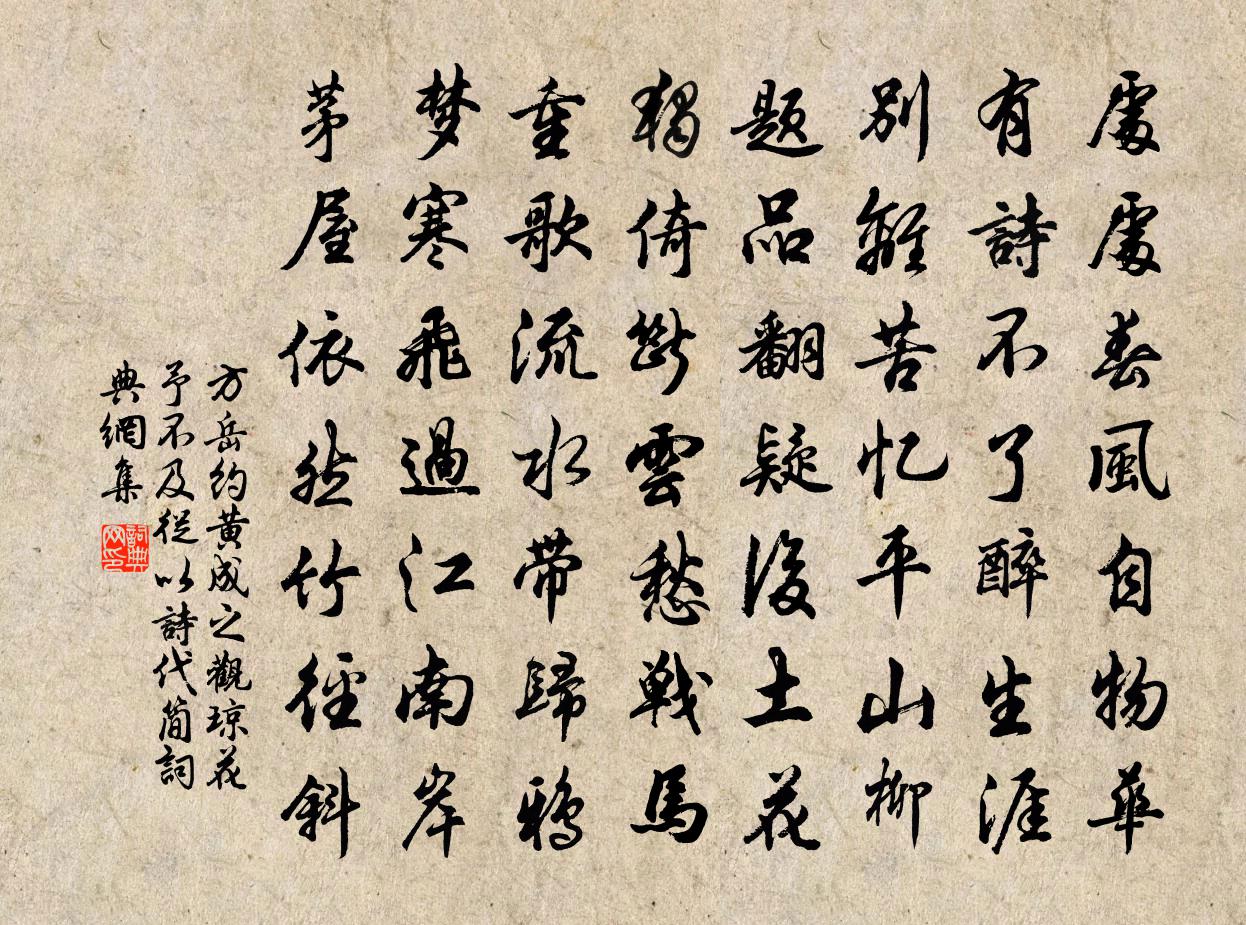 處處春風自物華
有詩不了醉生涯
別離苦忆平山柳
題品翻疑後土花
獨倚断雲愁戦馬
重歌流水帯歸鴉
梦寒飛過江南岸
茅屋依然竹徑斜
方岳約黄成之觀琼花
予不及從以詩代簡詞
典網集
詞典
网印